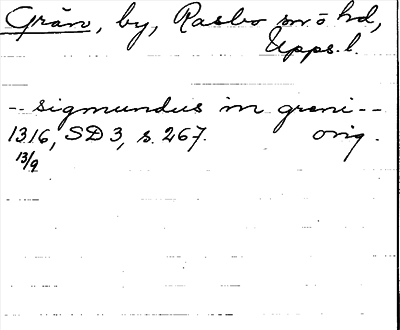 Grän, by, Rasbo sn o hd,
Upps. l.
-- sigmundus in greni --
1316, SD 3, s. 267. orig.
13/9